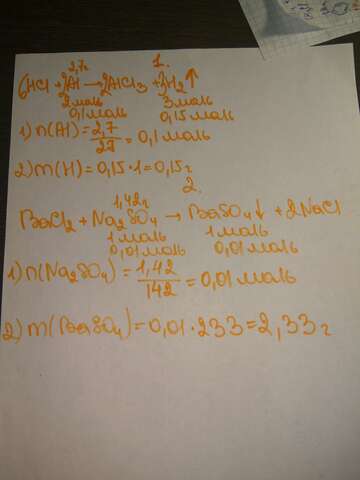 1.
2,7г
6HCl + 2Al → 2AlCl3 + 3H2 ↑
2моль 3моль
0,1моль 0,15моль
1) n(Al) = 2,7/27 = 0,1моль
2) m(H) = 0,15·1 = 0,15г
2.
1,42г
BaCl2 + Na2SO4 → BaSO4↓ + 2NaCl
1моль 1моль
0,01моль 0,01моль
1) n(Na2SO4) = 1,42/142 = 0,01моль
2) m(BaSO4) = 0,01·233 = 2,33г